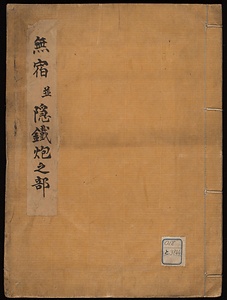 無宿並隠鐵炮之部